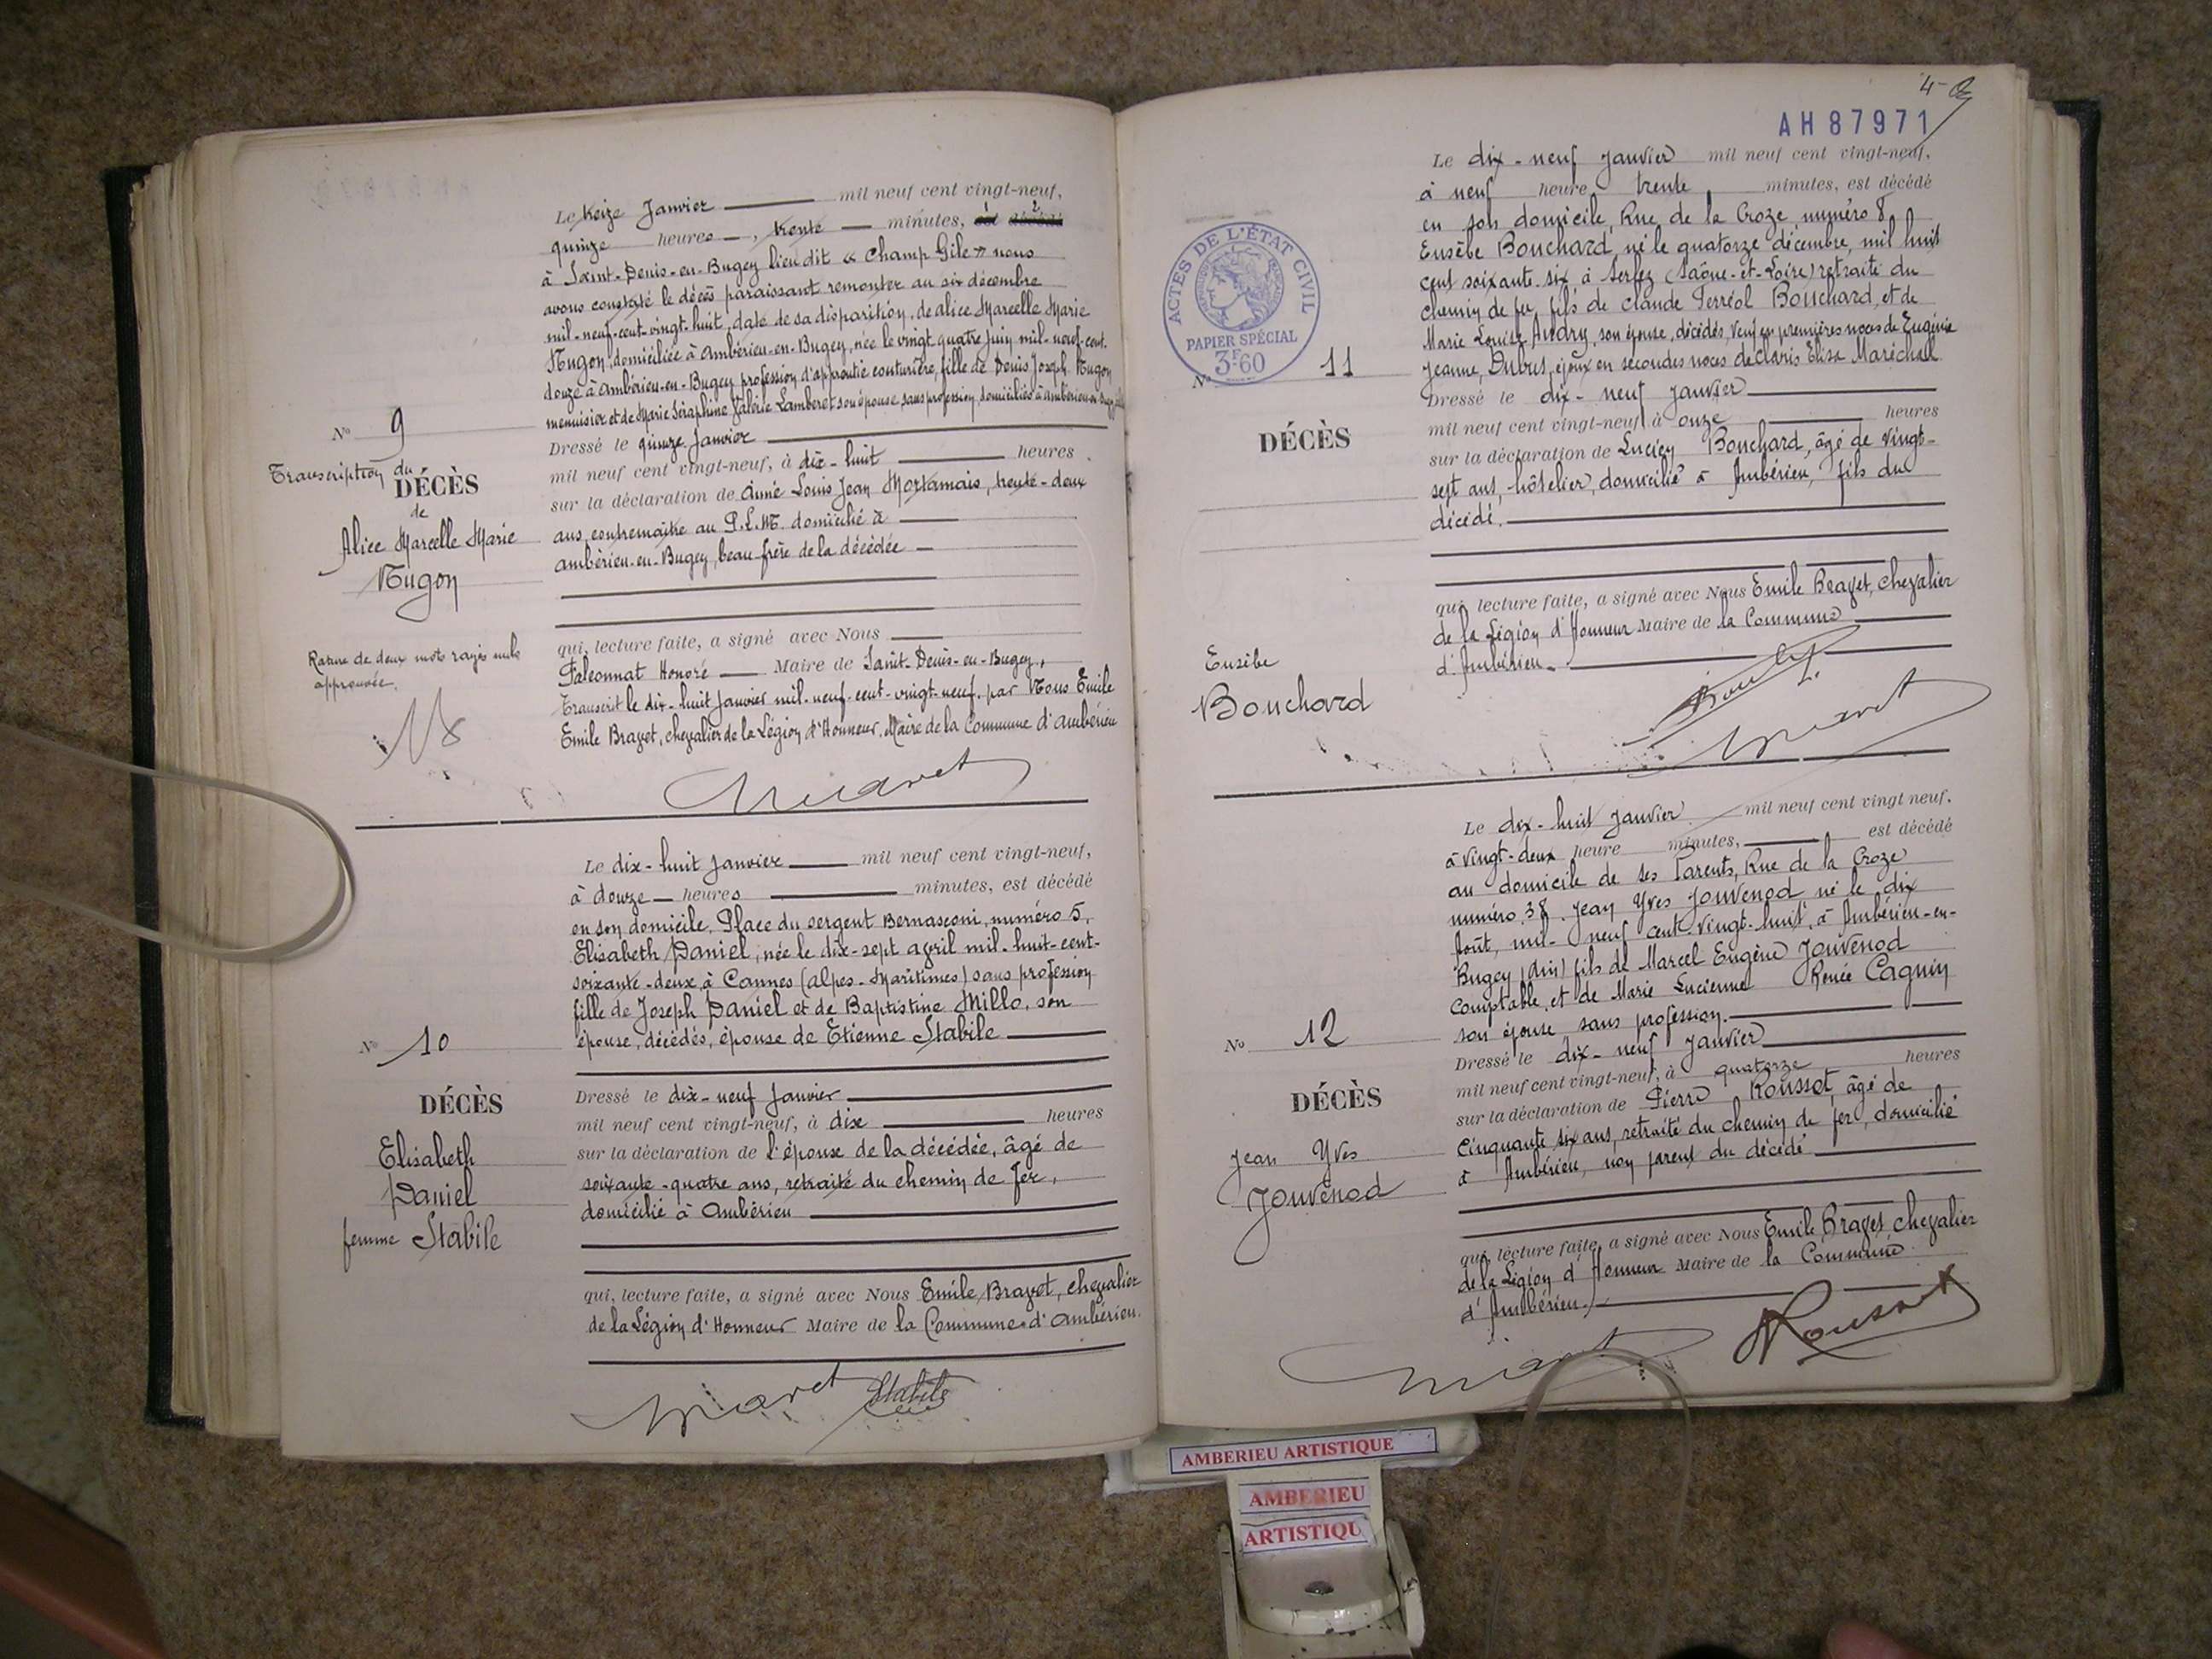 Le treize Janvier mil neuf cent vingt-neuf,
quinze heures, trente minutes, est décédé
à Saint-Denis-en-Bugey lieu dit « Champ Gile » nous
avons constaté le décès paraissant remonter au six décembre
mil-neuf-cent-vingt-huit, date de sa disparition, de alice Marcelle Marie
Nugon, domiciliée à Ambérieu-en-Bugey, née le vingt quatre Juin mil-neuf-cent-
douze à Ambérieu-en-Bugey profession d'apprentie couturière, fille de Denis Joseph Nugon
menuisier et de Marie Séraphine Valérie Lambert son épouse sans profession, domiciliés à ambérieu-en-Bugey
Nº 9
Transcription du
DÉCÈS
de
Alice Marcelle Marie
Nugon
Rature de deux mots rayés nuls
approuvée.
Dressé le quinze Janvier
mil neuf cent vingt-neuf, à dix-huit heures
sur la déclaration de Aimé Louis Jean Mortamais, trente-deux
ans, contremaître au P.L.M. domicilié à
ambérieu-en-Bugey, beau-frère de la décédée
qui, lecture faite, a signé avec Nous
Falconnat Honoré Maire de Saint-Denis-en-Bugey,
Transcrit le dix-huit Janvier mil-neuf-cent-vingt-neuf, par Nous Emile
Emile Bravet, chevalier de la Légion d'Honneur, Maire de la Commune d'Ambérieu
Le dix-huit Janvier mil neuf cent vingt-neuf,
à douze heures minutes, est décédé
en son domicile, Place du sergent Bernasconi, numéro 5,
Elisabeth Daniel, née le dix-sept avril mil-huit-cent-
soixante-deux, à Cannes (alpes-Maritimes) sans profession
fille de Joseph Daniel et de Baptistine Millo, son
épouse, décédés, épouse de Etienne Stabile
Nº 10
DÉCÈS
Elisabeth
Daniel
femme Stabile
Dressé le dix-neuf Janvier
mil neuf cent vingt-neuf, à dix heures
sur la déclaration de l'époux de la décédée, âgé de
soixante-quatre ans, retraité du chemin de fer,
domicilié à Ambérieu
qui, lecture faite, a signé avec Nous Emile Bravet, chevalier
de la Légion d'Honneur Maire de la Commune d'Ambérieu.
Bravet Stabile
4
AH87971
Le dix-neuf Janvier mil neuf cent vingt-neuf,
à neuf heure trente minutes, est décédé
en son domicile, Rue de la Croze numéro 8,
Eusèbe Bouchard, né le quatorze décembre, mil huit
cent soixante-six, à (Saône-et-Loire) retraité du
chemin de fer, fils de Claude Ferréol Bouchard, et de
Marie Louise son épouse, décédés, Veuf en premières noces de Eugénie
Jeanne, époux en secondes noces de Clanis Elisa Maréchal.
ACTES DE L'ÉTAT CIVIL
PAPIER SPÉCIAL
3F60
Nº 11
DÉCÈS
Eusèbe
Bouchard
Dressé le dix-neuf Janvier
mil neuf cent vingt-neuf, à onze heures
sur la déclaration de Lucien Bouchard, âgé de vingt-
sept ans, hôtelier, domicilié à Ambérieu, fils du
décédé.
qui, lecture faite, a signé avec Nous Emile Bravet, chevalier
de la Légion d'Honneur Maire de la Commune
d'Ambérieu.
Le dix-huit Janvier mil neuf cent vingt neuf,
à vingt-deux heure minutes, est décédé
au domicile de ses Parents, Rue de la Croze
numéro 38. Jean Yves Jouvenod né le dix
Août, mil-neuf cent-vingt-huit, à Ambérieu-en-
Bugey (Ain) fils de Marcel Eugène Jouvenod
Comptable, et de Marie Lucienne Renée Cagnin
son épouse sans profession.
Nº 12
DÉCÈS
Jean Yves
Jouvenod
Dressé le dix-neuf Janvier
mil neuf cent vingt-neuf, à quatorze heures
sur la déclaration de Pierre Rousset, âgé de
Cinquante six ans, retraité du chemin de fer, domicilié
à Ambérieu, non parent du décédé
qui, lecture faite, a signé avec Nous Emile Bravet, chevalier
de la Légion d'Honneur Maire de la Commune
d'Ambérieu.
Bravet Rousset
AMBERIEU ARTISTIQUE
AMBERIEU
ARTISTIQU